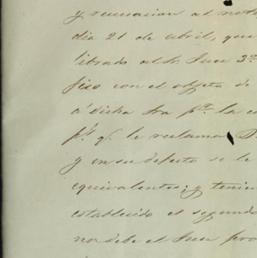 y recusacion al nota
dia 21 de abril, que
librado al Sr. Juez 3º
fiso con el objeto de
á dicha Sra pª. la co
pª. q. le reclama D
y en su defecto se le
equivalentes; y tenien
establecido el segundo
no debe el Juez pro